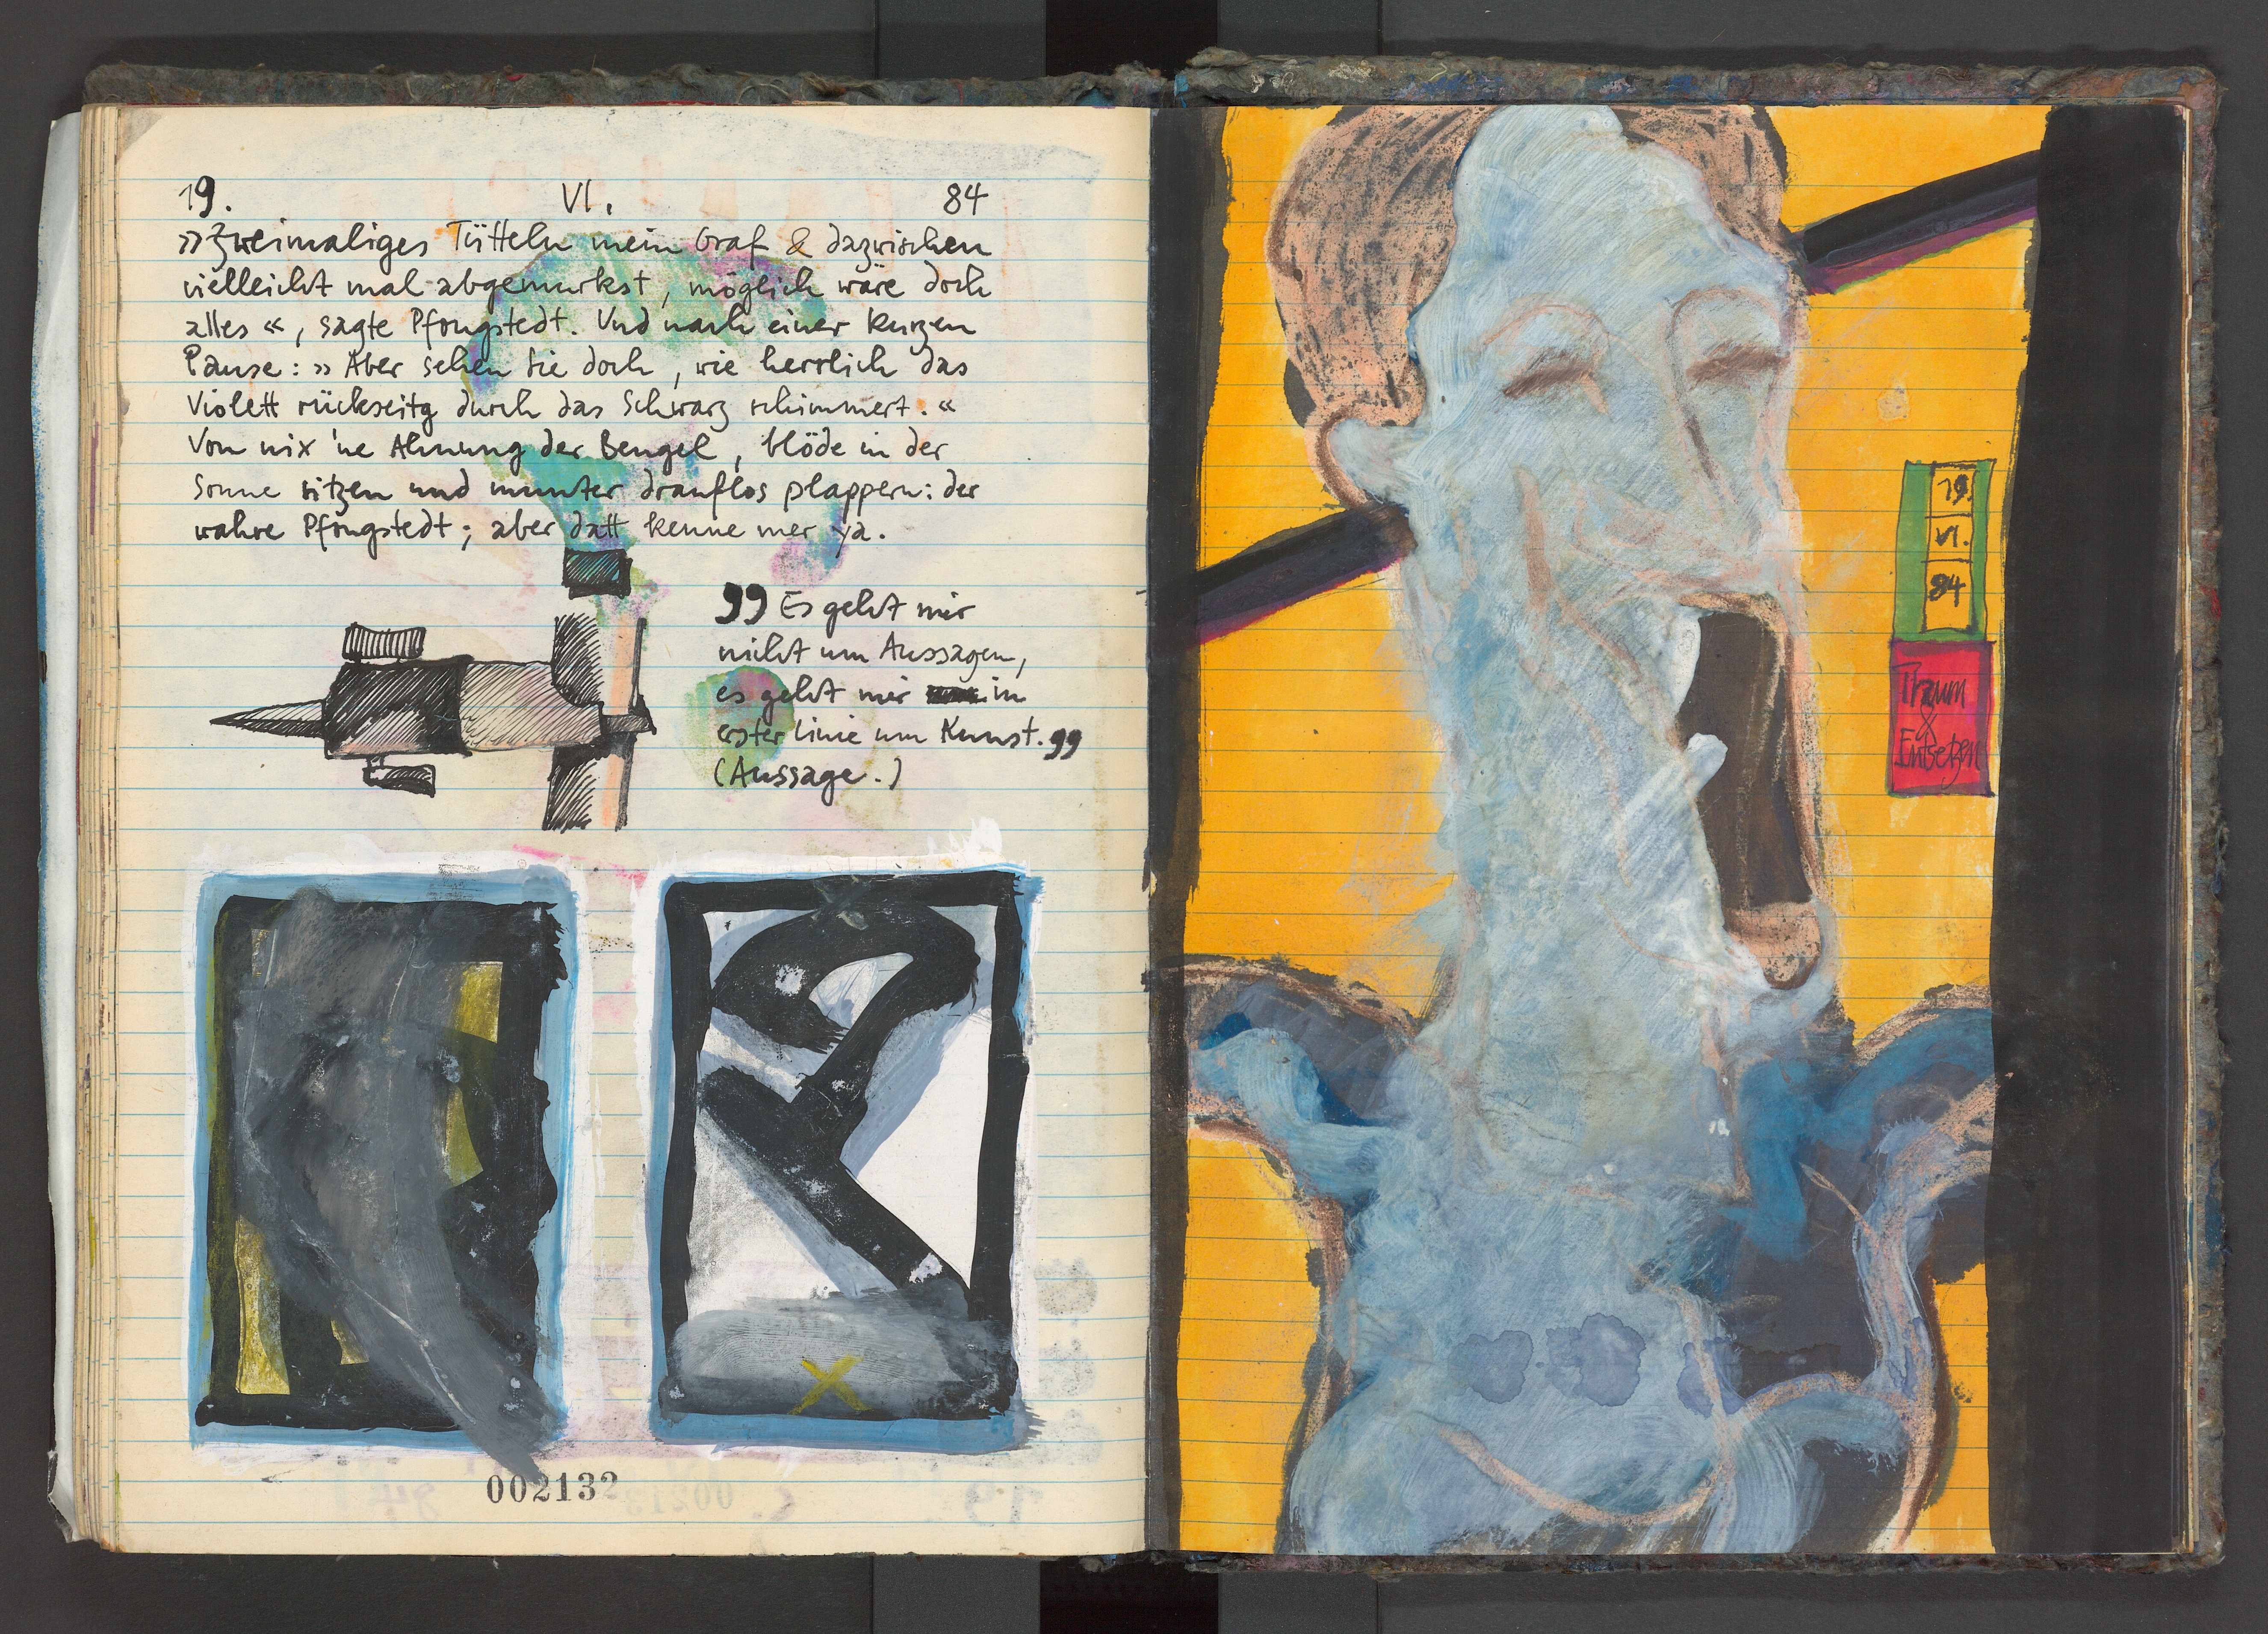 19. VI. 84
»Zweimaliges Tütteln mein Graf & dazwischen
vielleicht mal abgemurkst, möglich wäre doch
alles«, sagte Pfongstedt. Und nach einer kurzen
Pause: »Aber sehen Sie doch, wie herrlich das
Violett rückseitg durch das Schwarz schimmert.«
Von nix 'ne Ahnung der Bengel, blöde in der
Sonne sitzen und munter drauflos plappern: der
wahre Pfongstedt; aber datt kenne mer ya.
"Es geht mir
nicht um Aussagen,
es geht mir im
erster Linie um Kunst."
(Aussage.)
002132
19.
VI.
84
Traum
&
Entsetzen